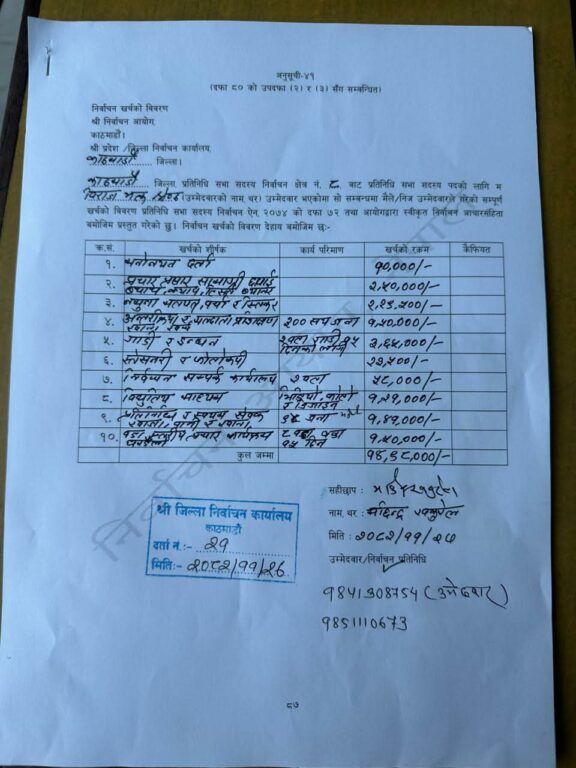 अनुसूची-४१
(दफा ८० को उपदफा (२) र (३) सँग सम्बन्धित)
निर्वाचन खर्चको विवरण
श्री निर्वाचन आयोग,
काठमाडौं।
श्री प्रदेश /जिल्ला निर्वाचन कार्यालय,
काठमाडौं जिल्ला।
काठमाडौं जिल्ला प्रतिनिधि सभा सदस्य निर्वाचन क्षेत्र नं. ८ बाट प्रतिनिधि सभा सदस्य पदको लागि म
विराज भक्त श्रेष्ठ (उम्मेदवारको नाम, थर) उम्मेदवार भएकोमा सो सम्बन्धमा मैले/निज उम्मेदवारले गरेको सम्पूर्ण
खर्चको विवरण प्रतिनिधि सभा सदस्य निर्वाचन ऐन, २०७४ को दफा ७२ तथा आयोगद्वारा स्वीकृत निर्वाचन आचारसंहिता
बमोजिम प्रस्तुत गरेको छु। निर्वाचन खर्चको विवरण देहाय बमोजिम छः-
क्र.सं. खर्चको शीर्षक कार्य परिमाण खर्चको रकम कैफियत
१. मनोनयन दर्ता १०,०००/-
२. प्रचार प्रसार सामाग्री छपाई २,५०,०००/-
३. नमुना मतपत्र, पर्चा र स्टिकर २,२६,५००/-
४. अन्तरक्रिया र मतदाता प्रशिक्षण खाजा खर्च ३०० सय जना १,५०,०००/-
५. गाडी र इन्धन ३,६५,०००/-
६. स्टेशनरी र फोटोकपी २३,५००/-
७. निर्वाचन सम्पर्क कार्यालय ३ वटा ५८,०००/-
८. विद्युतिय माध्यम भिडियो, फोटो र डिजाइन १,२१,०००/-
९. प्रतिनिधि र स्वयम सेवक खाजा, पानी र खाना जना १,४१,०००/-
१०. १५ दिन १,५०,०००/-
कुल जम्मा १४,९८,०००/-
सहीछाप :
नाम, थर :
मिति : २०८२/११/२७
उम्मेदवार/निर्वाचन प्रतिनिधि
9841308754 (उमेदवार)
9851110673
श्री जिल्ला निर्वाचन कार्यालय
काठमाडौं
दर्ता नं.:- २१
मितिः- २०८२/११/२८
८७